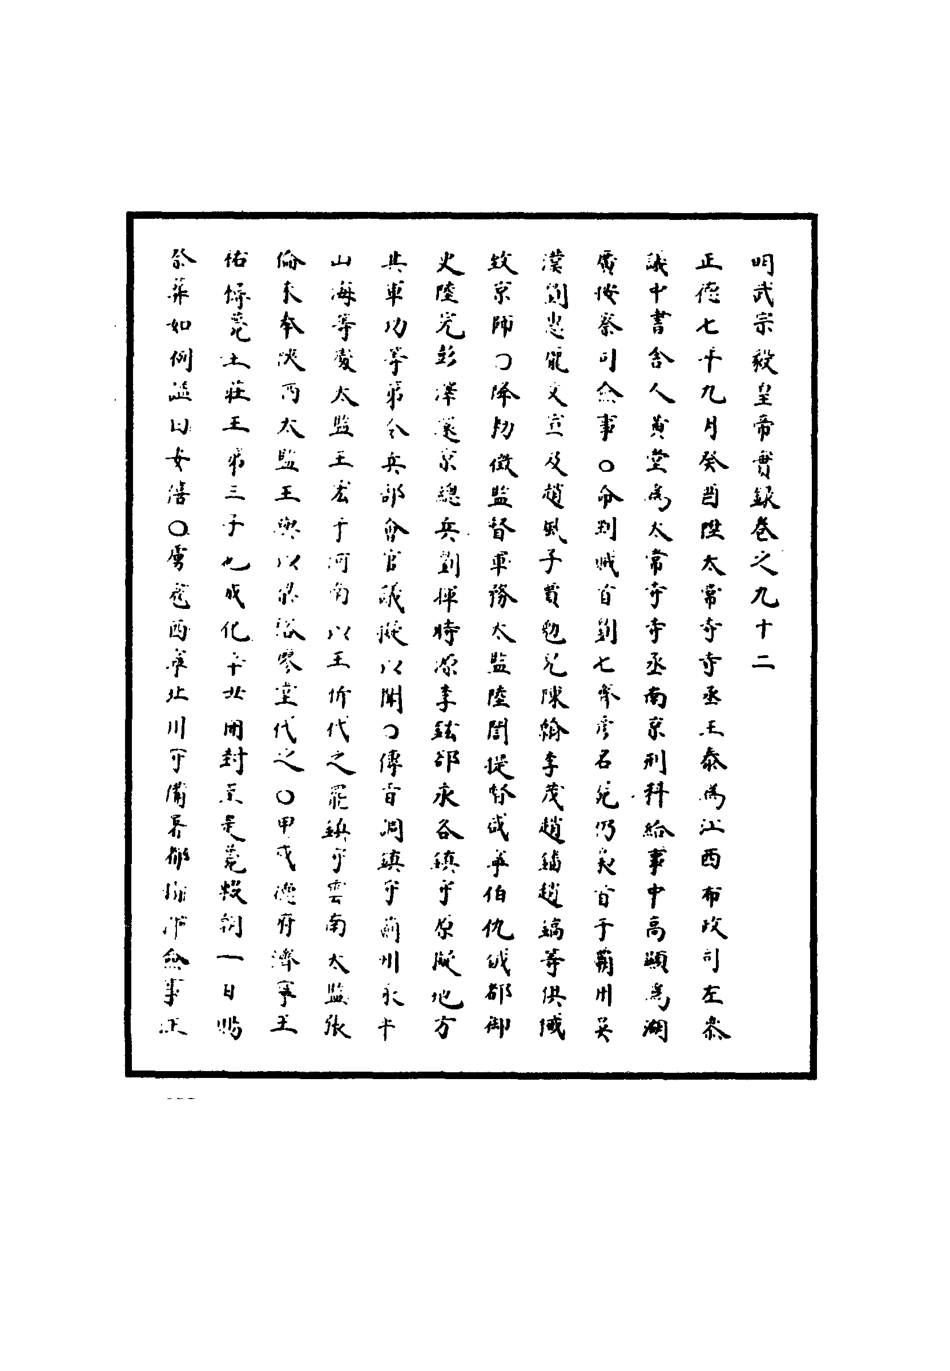 明武宗毅皇帝實錄卷之九十二
正德七年九月癸酉陞太常寺寺丞王泰為江西布政司左叅
議中書舍人黃堂為太常寺寺丞南京刑科給事中高顯為湖
廣按察司僉事○命剉賊首劉七齊彥名屍仍梟首于霸州吳
漢劉惠龐文宣及趙風子賈勉兒陳翰李茂趙鐇趙鎬等俱械
致京師○降勑徵監督軍務太監陸誾提督咸寧伯仇鉞都御
史陸完彭澤還京總兵劉暉時源李鋐郤永各鎮守原疑地方
其軍功等第令兵部會官議擬以聞○傳旨調鎮守薊州永平
山海等處太監王宏于河南以王忻代之罷鎮守雲南太監張
倫未奉陝西太監王興以梁裕廖堂代之○甲戌德府濟寧王
祐樗薨土莊王第三子也成化年廿開封至是薨輟朝一日賜
祭葬如例謚曰安僖○虜寇西寧北川守備署都指揮僉事汪